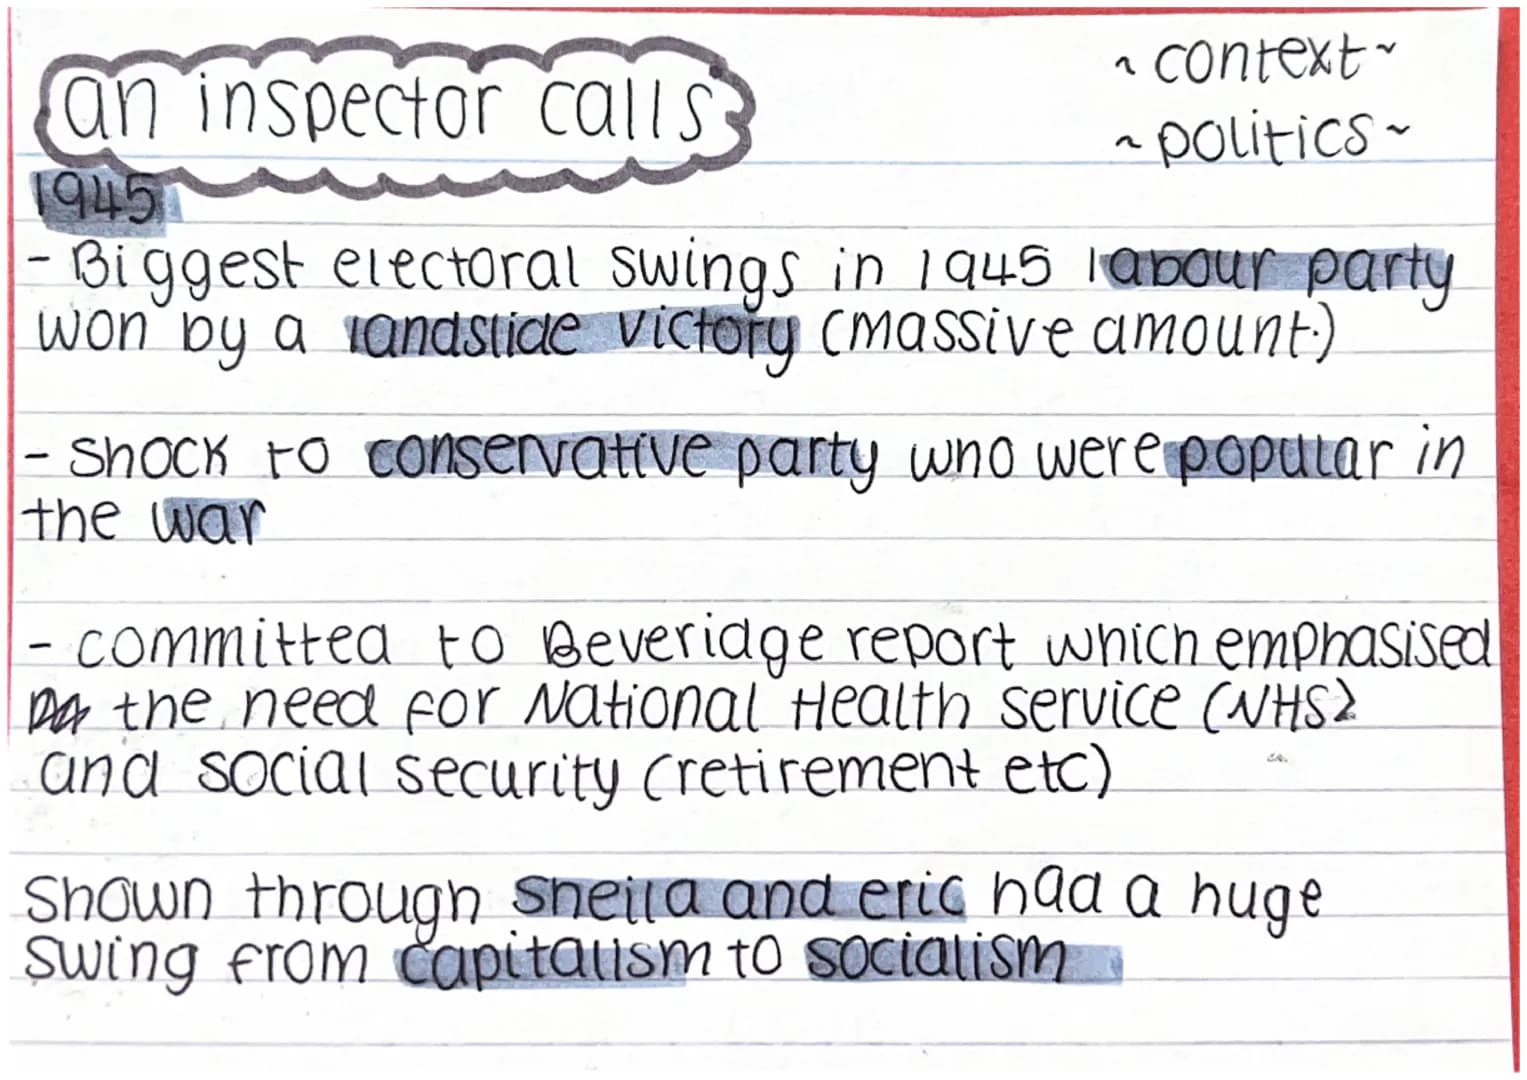 an inspector calls
~ context ~
~ politics ~
1945
- Biggest electoral swings in 1945 labour party
won by a landslide victory (massive amount.)
- Shock to conservative party who were popular in
the war
- committed to Beveridge report which emphasised
the need for National Health service (NHS)
and social security (retirement etc)
Shown through Sheila and eric had a huge
swing from capitalism to socialism